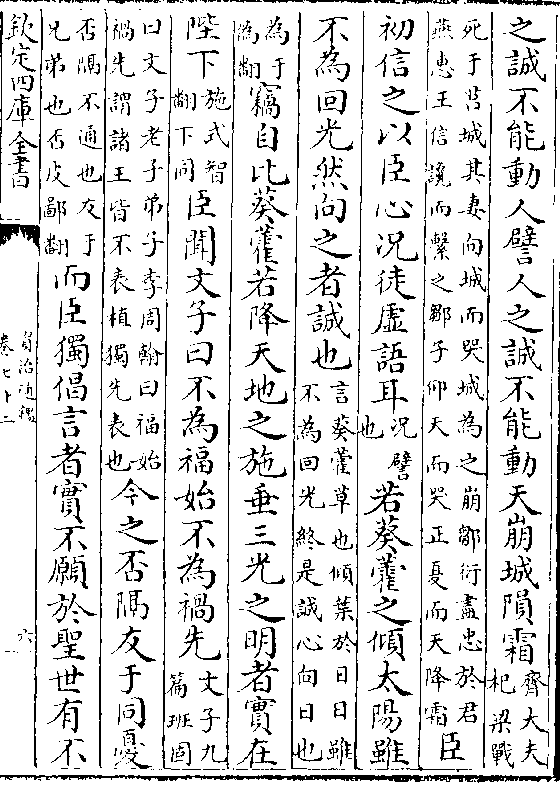 之誠不能動人譬人之誠不能動天崩城隕霜齊大夫杞梁戰
死于莒城其妻向城而哭城為之崩鄒衍盡忠於君燕惠王信讒而繫之鄒子仰天而哭正夏而天降霜臣
初信之以臣心况徒虛語耳况譬也若葵藿之傾太陽雖
不為回光然向之者誠也言葵藿草也傾葉於日日雖不為回光終是誠心向日也
為于為翻竊自比葵藿若降天地之施垂三光之明者實在
陛下施式智翻下同臣聞文子曰不為福始不為禍先文子九篇班固
曰文子老子弟子李周翰曰福始禍先謂諸王皆不表植獨先表也今之否隔友于同憂
否隔不通也友于兄弟也否皮鄙翻而臣獨倡言者實不願於聖世有不
欽定四庫全書
資治通鑑
卷七十二
六